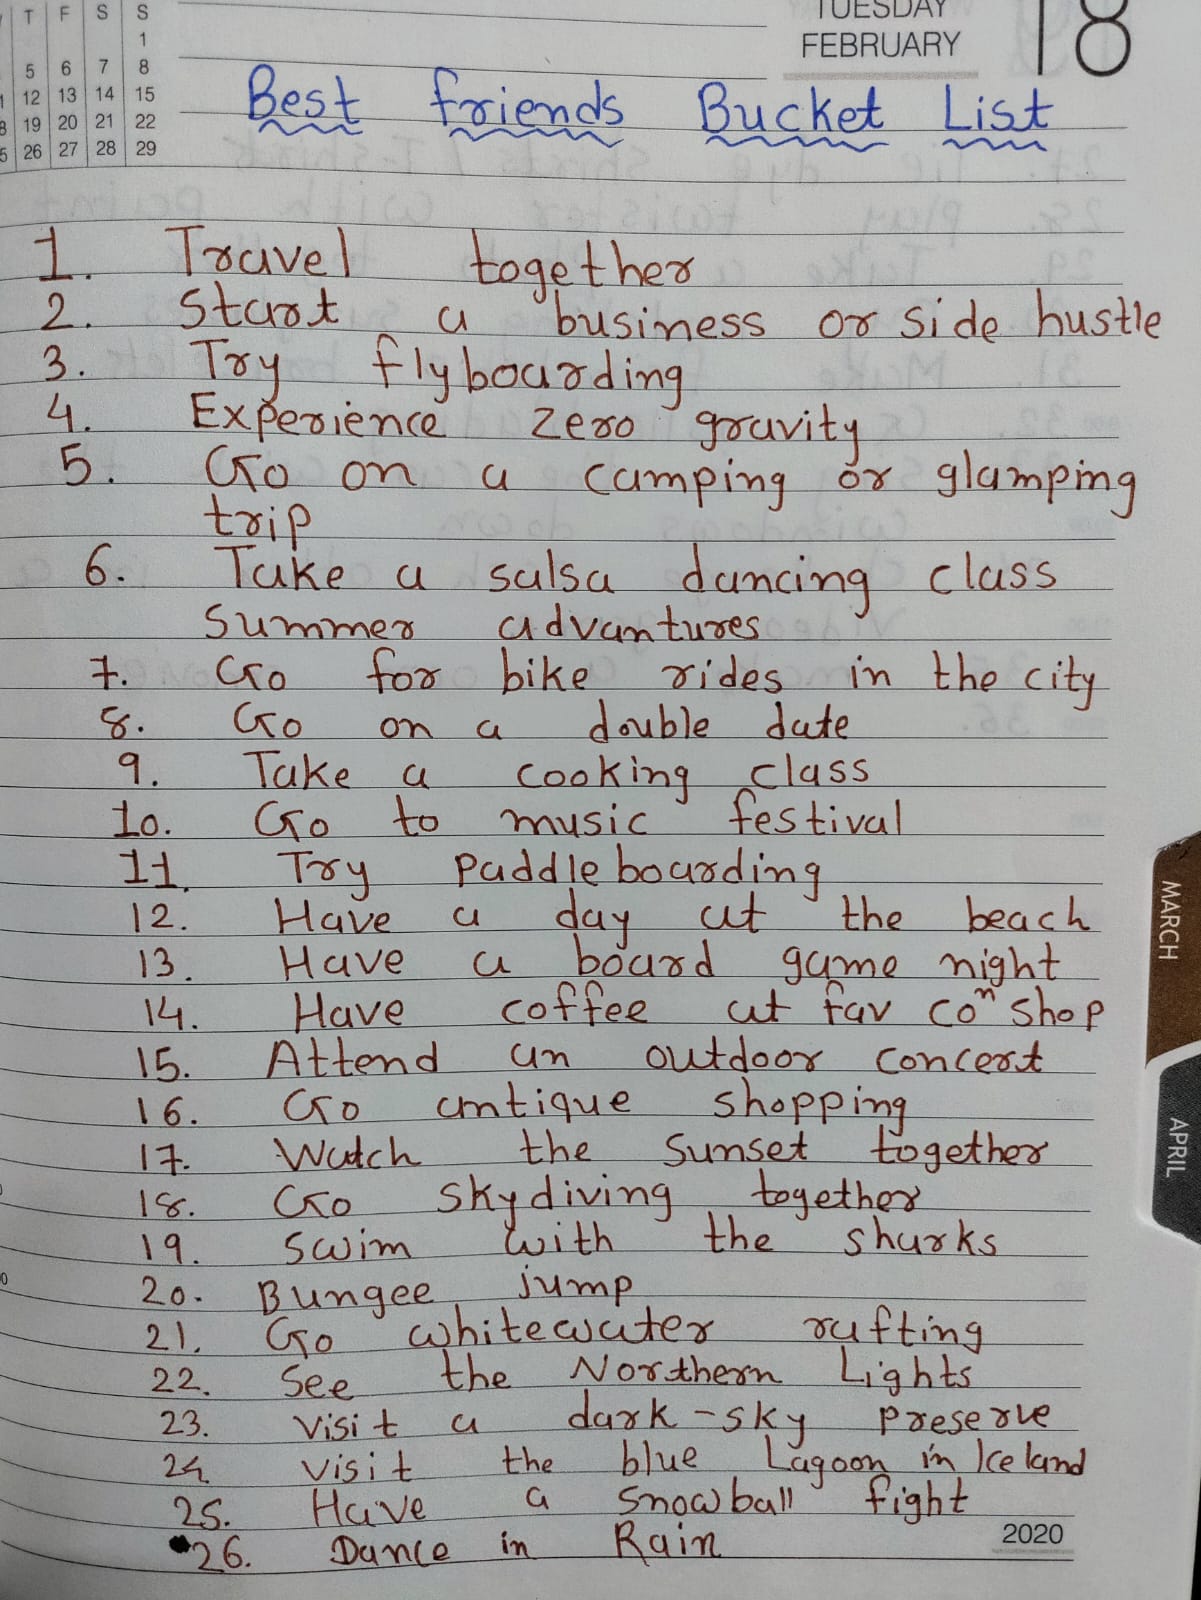 T F S S
1
5 6 7 8
12 13 14 15
19 20 21 22
26 27 28 29
TUESDAY
FEBRUARY
18
Best friends Bucket List
1. Travel together
2. Start a business or side hustle
3. Try flyboarding
4. Experience zero gravity
5. Go on a camping or glamping
trip
6. Take a salsa dancing class
Summer advantures
7. Go for bike rides in the city
8. Go on a double date
9. Take a cooking class
10. Go to music festival
11. Try Paddle boarding
12. Have a day at the beach
13. Have a board game night
14. Have coffee at fav coⁿ shop
15. Attend an outdoor concert
16. Go antique shopping
17. Watch the sunset together
18. Go skydiving together
19. Swim with the sharks
20. Bungee jump
21. Go whitewater rafting
22. See the Northern Lights
23. Visit a dark-sky preserve
24 Visit the blue Lagoon in Iceland
25. Have a snowball fight
26. Dance in Rain
2020
MARCH
APRIL